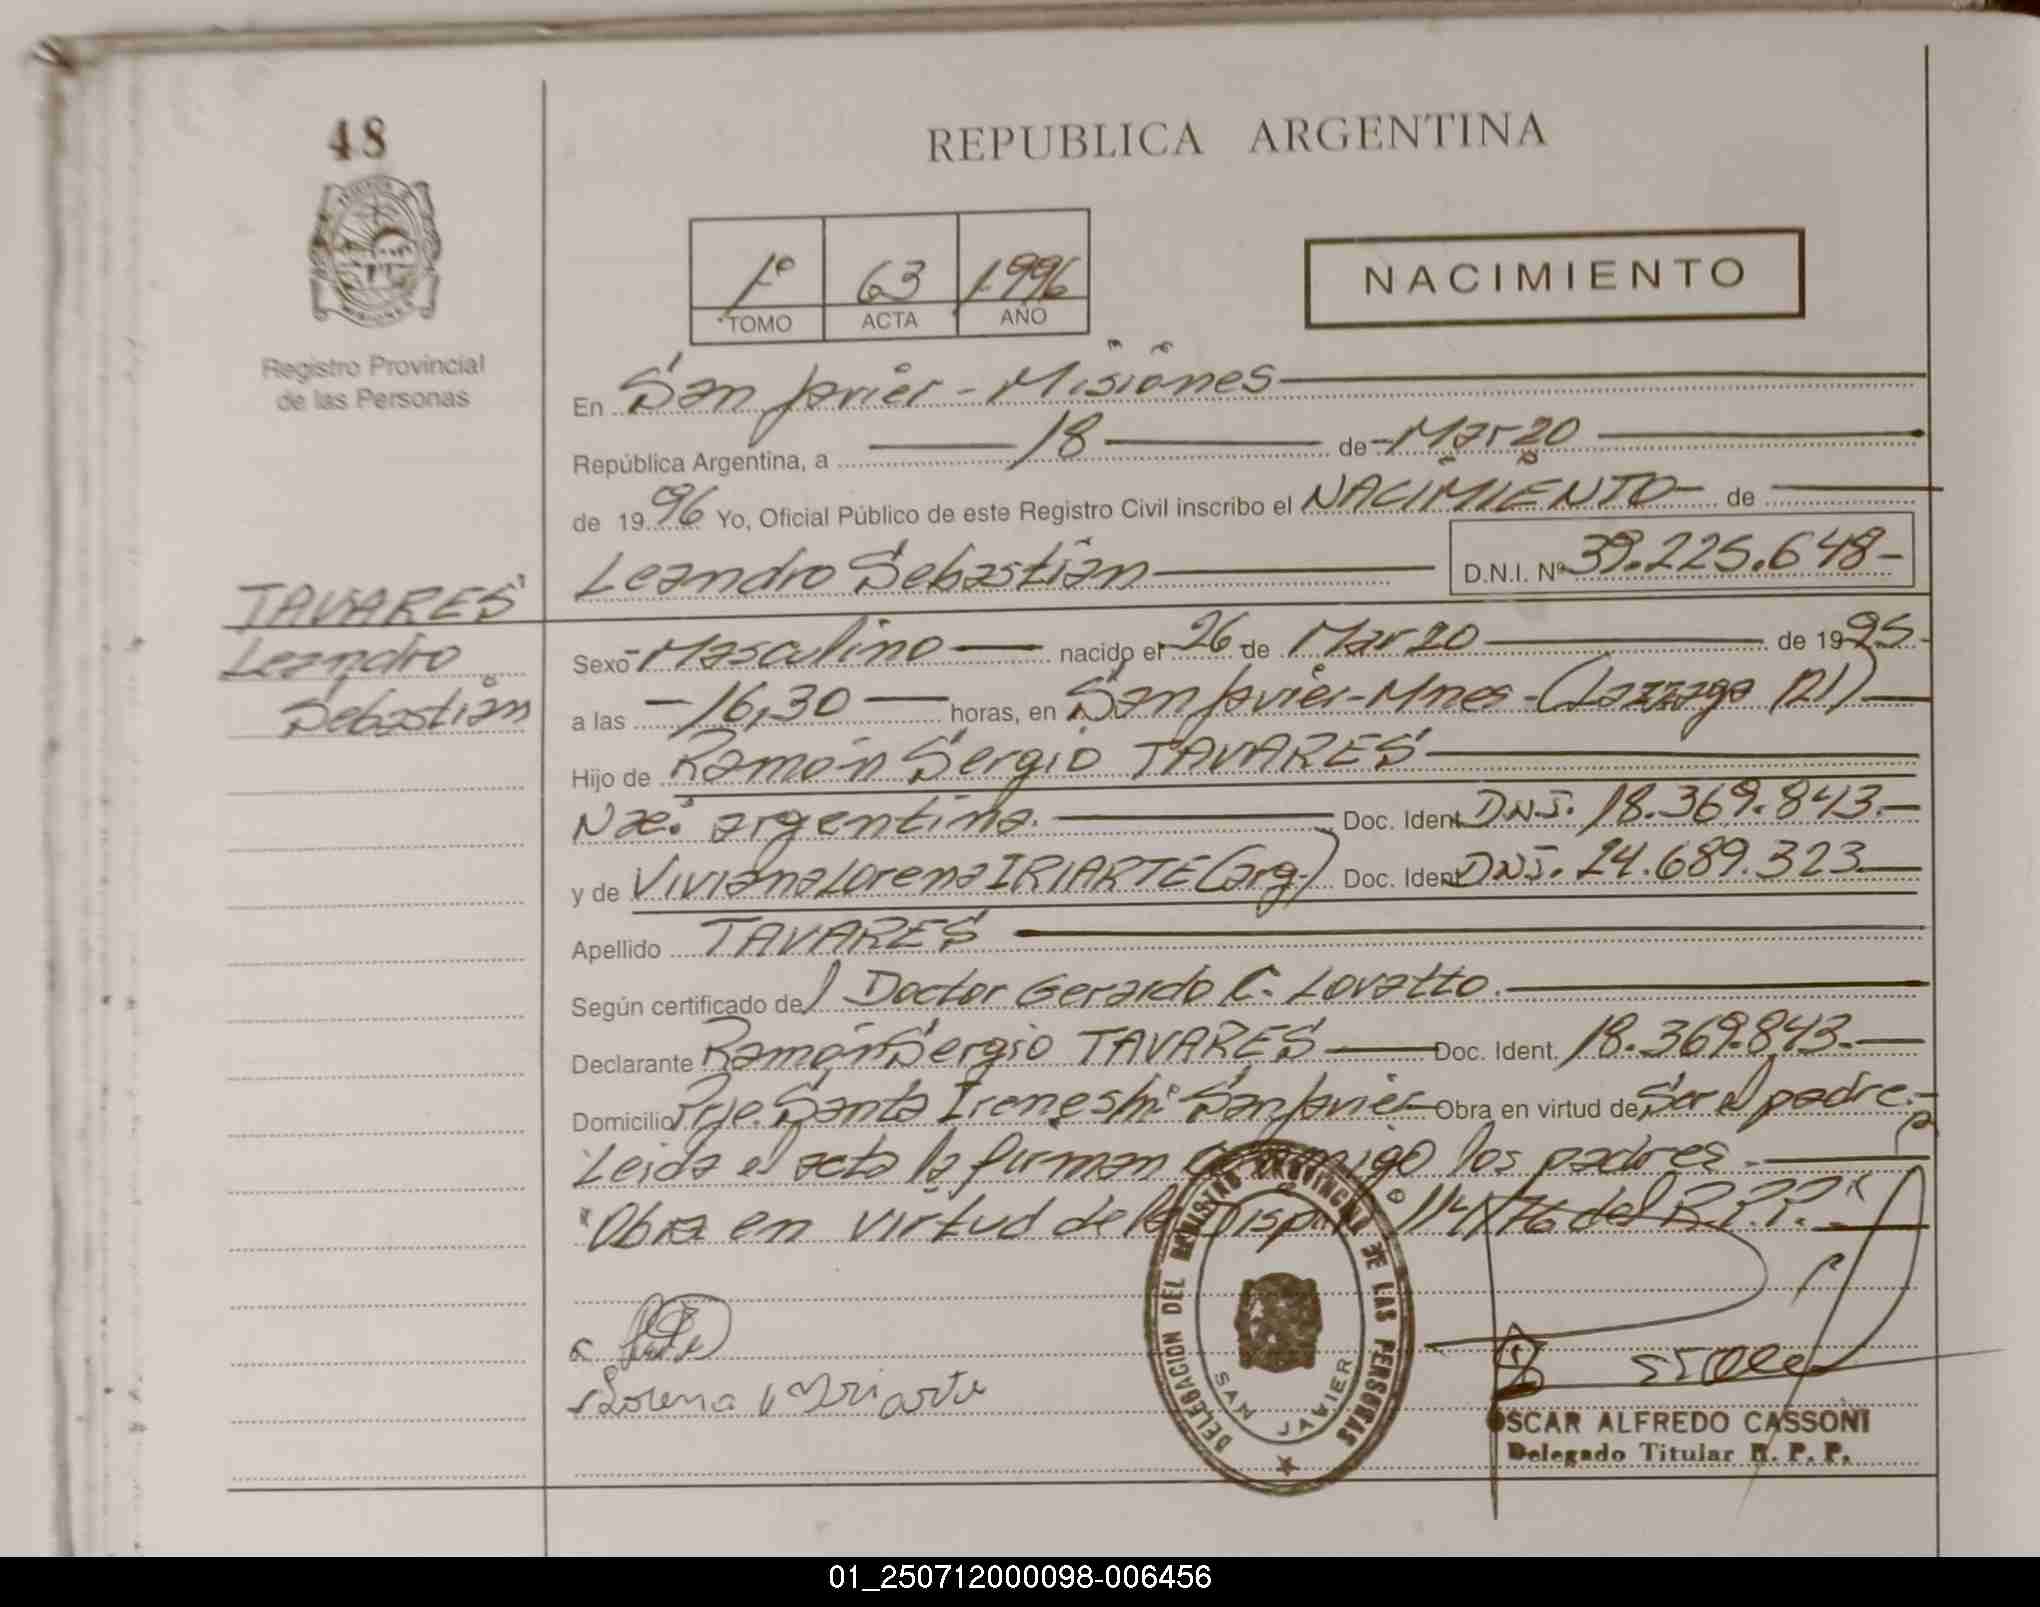 48
REPUBLICA ARGENTINA
1º 63 1996
TOMO ACTA AÑO
NACIMIENTO
Registro Provincial
de las Personas
En San Javier - Misiones
República Argentina, a 18 de Marzo
de 1996 Yo, Oficial Público de este Registro Civil inscribo el NACIMIENTO de
Leandro Sebastián D.N.I. Nº 39.225.648-
TAVARES
Leandro
Sebastián
Sexo Masculino nacido el 26 de Marzo de 1995.
a las 16,30 horas, en San Javier-Mnes-
Hijo de Ramón Sergio TAVARES
Nac. argentina. Doc. Ident. D.N.I. 18.369.843.-
y de Viviana Lorena IRIARTE (arg.) Doc. Ident. D.N.I. 24.689.323.
Apellido TAVARES
Según certificado del Doctor Gerardo C. Lovatto.
Declarante Ramón Sergio TAVARES Doc. Ident. 18.369.843.-
Domicilio Pje. Santa Irene s/n: San Javier Obra en virtud de Ser el padre.-
Leida el acta la firman conmigo los padres.
"Obra en virtud de la Disp. Nº 114/76 del R.P.P."
Lorena V Iriarte
DELEGACION DEL REGISTRO PROVINCIAL DE LAS PERSONAS
SAN JAVIER
OSCAR ALFREDO CASSONI
Delegado Titular R. P. P.
01_250712000098-006456